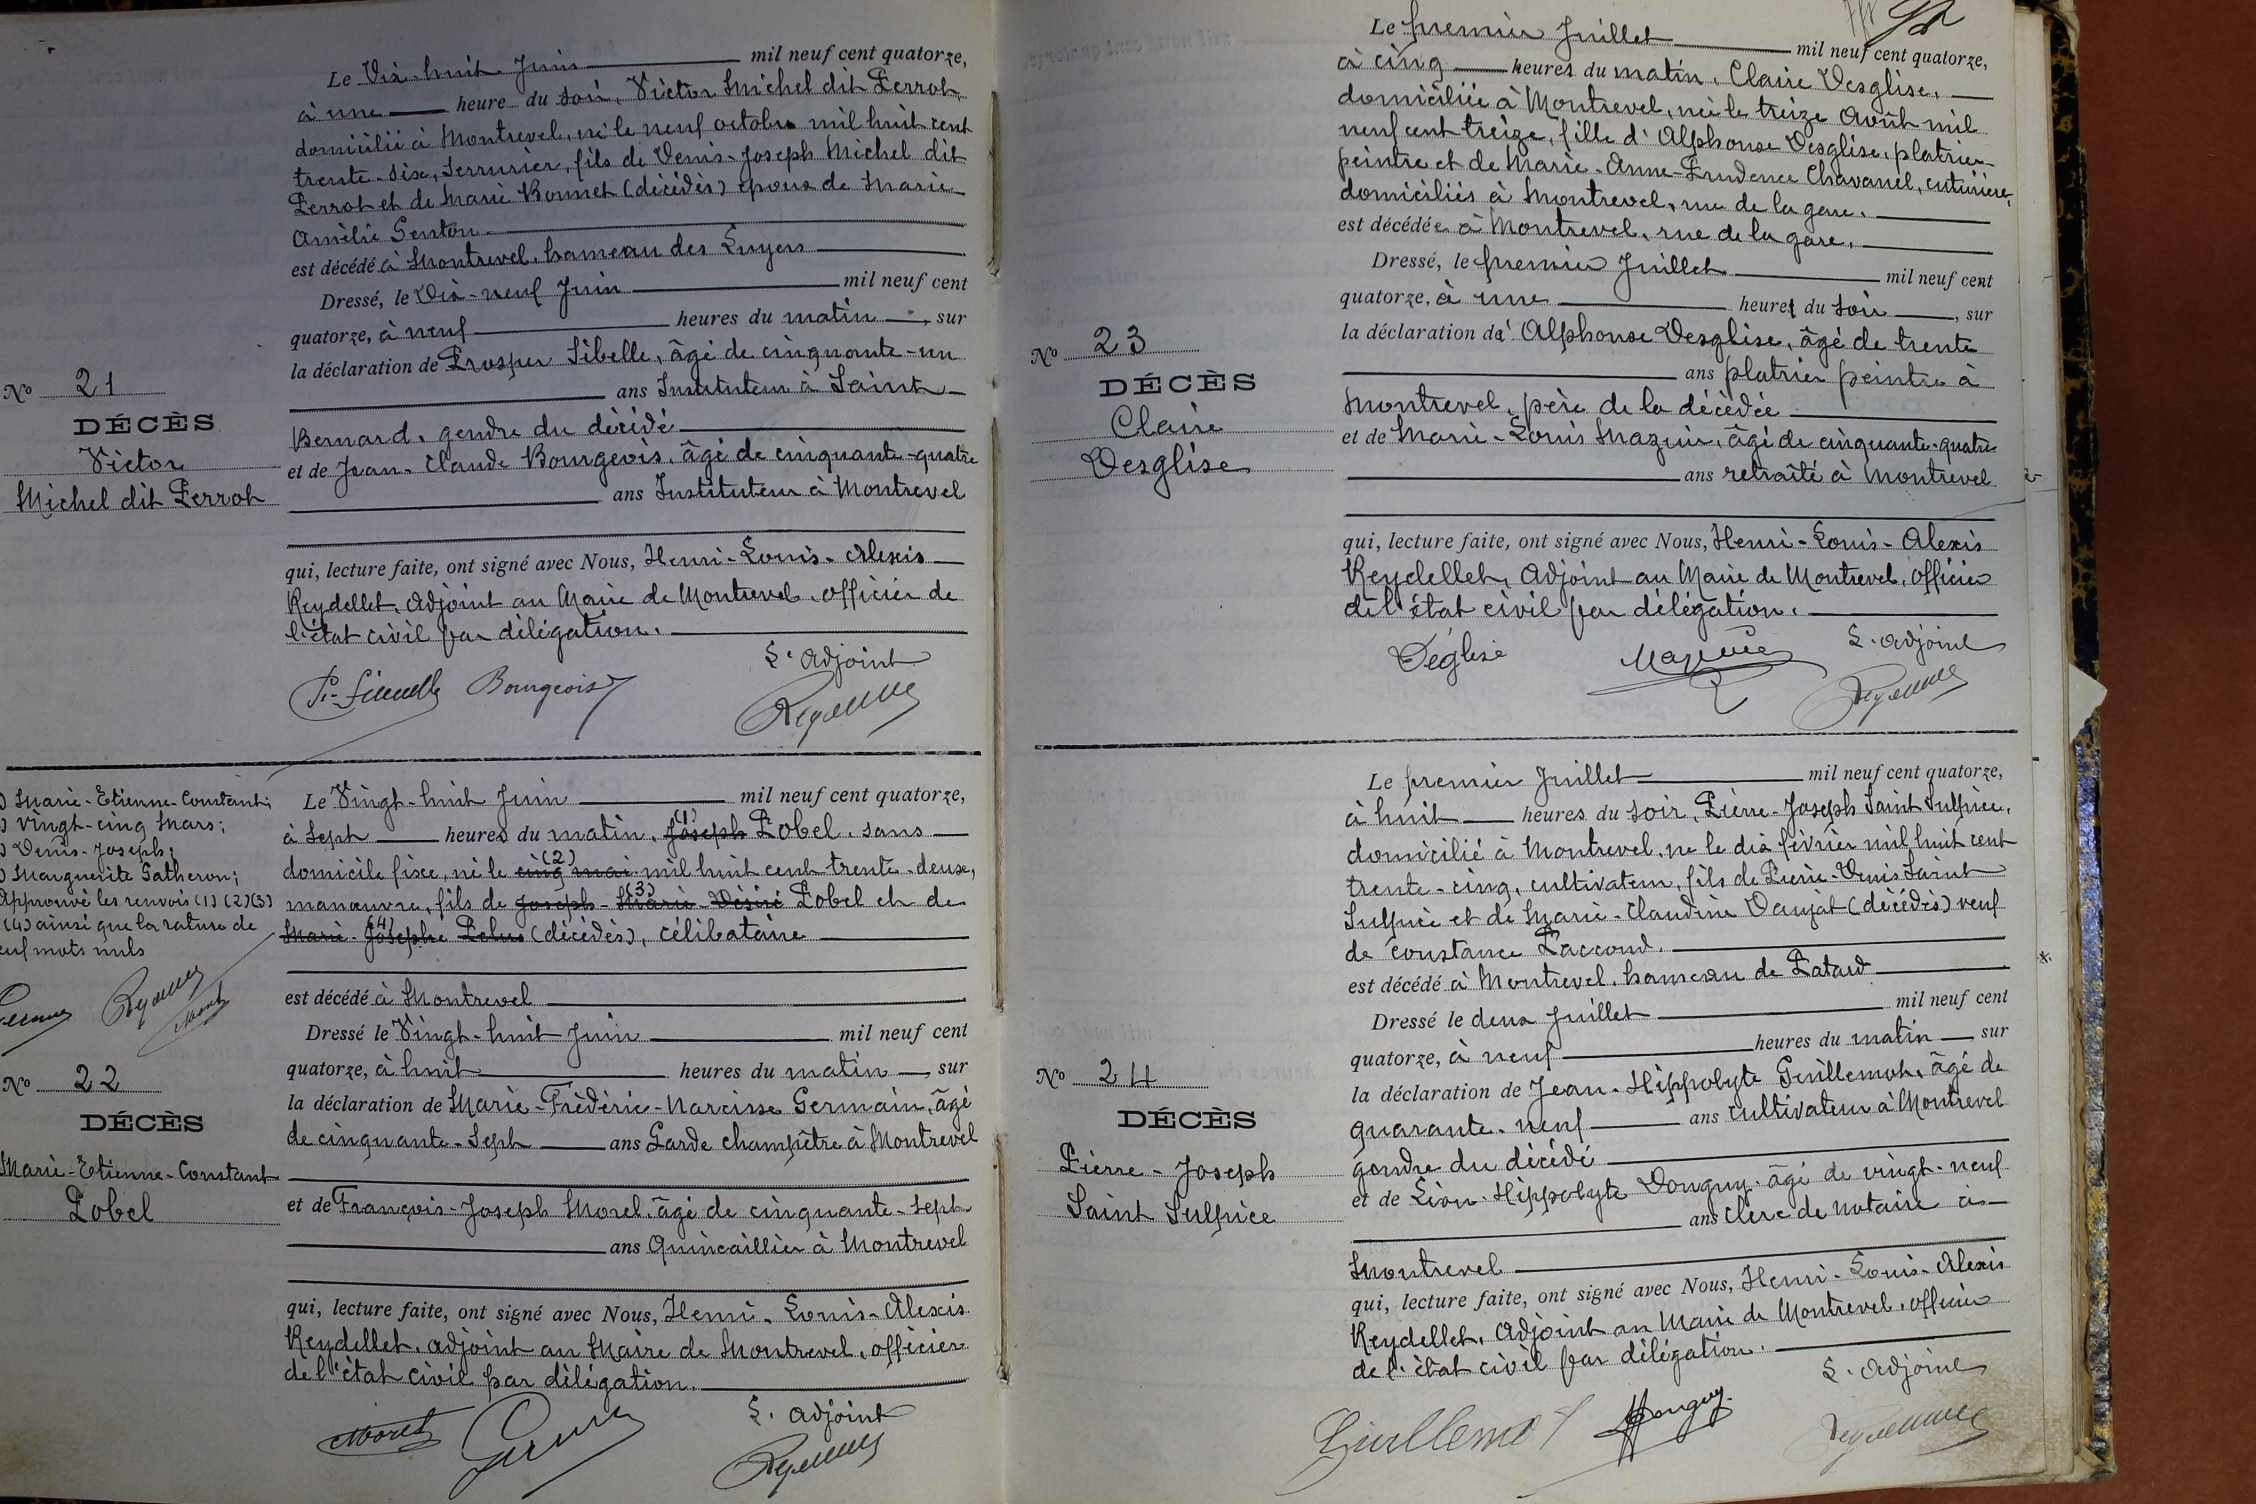 Le Dix-huit Juin mil neuf cent quatorze,
à une heure du soir, Victor Michel dit Perrot,
domicilié à Montrevel, né le neuf octobre mil huit cent
trente-six, Serrurier, fils de Denis-Joseph Michel dit
Perrot et de Marie Bonnet (décédés) époux de Marie
Amélie Senton
est décédé à Montrevel, hameau des Luyers
Dressé, le Dix-neuf Juin mil neuf cent
quatorze, à neuf heures du matin, sur
la déclaration de Prosper Sibelle, âgé de cinquante-un
ans Instituteur à Saint
Bernard, gendre du décédé
et de Jean-Claude Bourgeois, âgé de cinquante-quatre
ans Instituteur à Montrevel
qui, lecture faite, ont signé avec Nous, Henri-Louis-Alexis
Reydellet, adjoint au Maire de Montrevel, officier de
l'état civil par délégation.
L'adjoint
Bourgeois
No 21
DÉCÈS
Victor
Michel dit Perrot
) Marie-Etienne-Constant;
) Vingt-cinq Mars;
) Denis-Joseph;
) Marguerite Catheron;
Approuvé les renvois (1) (2) (3)
(4) ainsi que la rature de
neuf mots nuls
Le Vingt-huit Juin mil neuf cent quatorze,
à Sept heures du matin, (1) Joseph Pobel, sans
domicile fixe, né le (2) cinq mai mil huit cent trente-deux,
manœuvre, fils de Joseph-Marie-Désiré (3) Pobel et de
Marie-Josephe (4) Pelus (décédés), célibataire
est décédé à Montrevel
Dressé le Vingt-huit Juin mil neuf cent
quatorze, à huit heures du matin, sur
la déclaration de Marie-Frédéric-Narcisse Germain, âgé
de cinquante-Sept ans Garde champêtre à Montrevel
et de François-Joseph Morel, âgé de cinquante-Sept
ans Quincaillier à Montrevel
qui, lecture faite, ont signé avec Nous, Henri-Louis-Alexis
Reydellet, adjoint au Maire de Montrevel, officier
de l'état civil par délégation.
L'adjoint
Morel
No 22
DÉCÈS
Marie-Etienne-Constant
Pobel
Le premier Juillet mil neuf cent quatorze,
à cinq heures du matin, Claire Desglise,
domiciliée à Montrevel, née le treize Août mil
neuf cent treize, fille d'Alphonse Desglise, platrier
peintre et de Marie-Anne-Prudence Chavanel, couturière,
domiciliés à Montrevel, rue de la gare,
est décédée à Montrevel, rue de la gare,
Dressé, le premier Juillet mil neuf cent
quatorze, à une heure du soir, sur
la déclaration d'Alphonse Desglise, âgé de trente
ans platrier peintre à
Montrevel, père de la décédée
et de Marie-Louis Mazuir, âgé de cinquante-quatre
ans retraité à Montrevel
qui, lecture faite, ont signé avec Nous, Henri-Louis-Alexis
Reydellet, Adjoint au Maire de Montrevel, officier
de l'état civil par délégation.
Déglise
Mazuir
L'adjoint
No 23
DÉCÈS
Claire
Desglise
Le premier Juillet mil neuf cent quatorze,
à huit heures du soir, Pierre-Joseph Saint Sulpice,
domicilié à Montrevel, né le dix février mil huit cent
trente-cinq, cultivateur, fils de Pierre-Denis Saint
Sulpice et de Marie-Claudine Danjat (décédés) veuf
de Constance Paccoud.
est décédé à Montrevel, hameau de Patard
Dressé le deux Juillet mil neuf cent
quatorze, à neuf heures du matin sur
la déclaration de Jean-Hippolyte Guillemot, âgé de
quarante-neuf ans cultivateur à Montrevel
gendre du décédé
et de Léon-Hippolyte Donguy, âgé de vingt-neuf
ans Clerc de notaire à
Montrevel
qui, lecture faite, ont signé avec Nous, Henri-Louis-Alexis
Reydellet, Adjoint au Maire de Montrevel, officier
de l'état civil par délégation.
L'adjoint
Guillemot
Donguy
No 24
DÉCÈS
Pierre-Joseph
Saint Sulpice